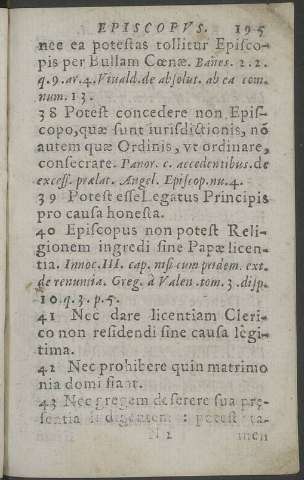 EPISCOPVS. 195
nec ea potestas tollitur Episco-
pis per Bullam Cœnæ. Banes. 2. 2.
q. 9. ar. 4. Viuald. de absolut. ab ea com.
num. 13.
38 Potest concedere non Epis-
copo, quæ sunt iurisdictionis, nõ
autem quæ Ordinis, vt ordinare,
consecrare. Panor. c. accedentibus. de
excess. prælat. Angel. Episcop. nu. 4.
39 Potest esse Legatus Principis
pro causa honesta.
40 Episcopus non potest Reli-
gionem ingredi sine Papæ licen-
tia. Innoc. III. cap. nisi cum pridem. ext.
de renuntia. Greg. à Valen. tom. 3. disp.
10. q. 3. p. 5.
41 Nec dare licentiam Cleri-
co non residendi sine causa legi-
tima.
42 Nec prohibere quin matrimo
nia domi fiant.
43 Nec gregem deserere sua præ-
sentia indigentem : potest ta-
N 2 men